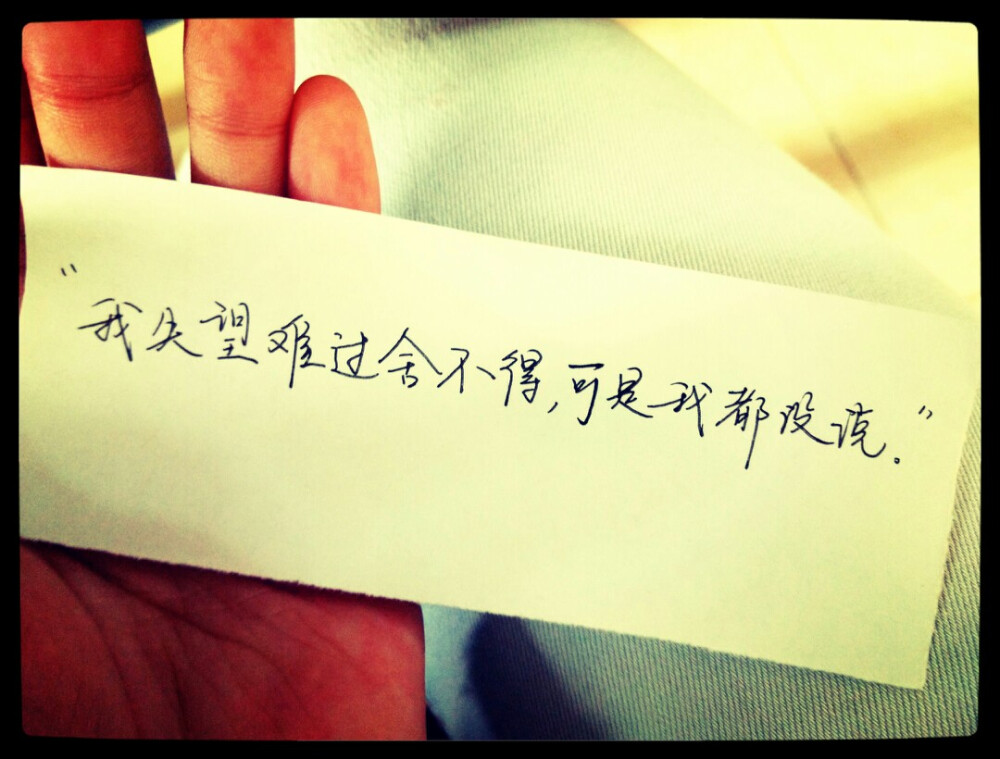 “我失望难过舍不得,可是我都没说。”